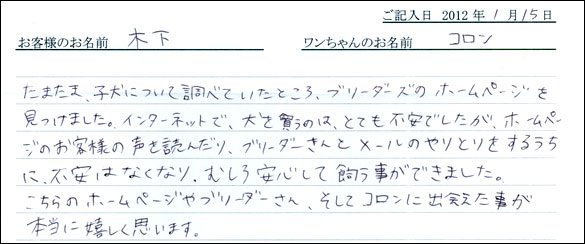 ご記入日 2012年1月15日
お客様のお名前 木下 ワンちゃんのお名前 コロン
たまたま、子犬について調べていたところ、ブリーダーズのホームページを
見つけました。インターネットで、犬を買うのは、とても不安でしたが、ホームペー
ジのお客様の声を読んだり、ブリーダーさんとメールのやりとりをするうち
に、不安はなくなり、むしろ安心して飼う事ができました。
こちらのホームページやブリーダーさん、そしてコロンに出会えた事が
本当に嬉しく思います。